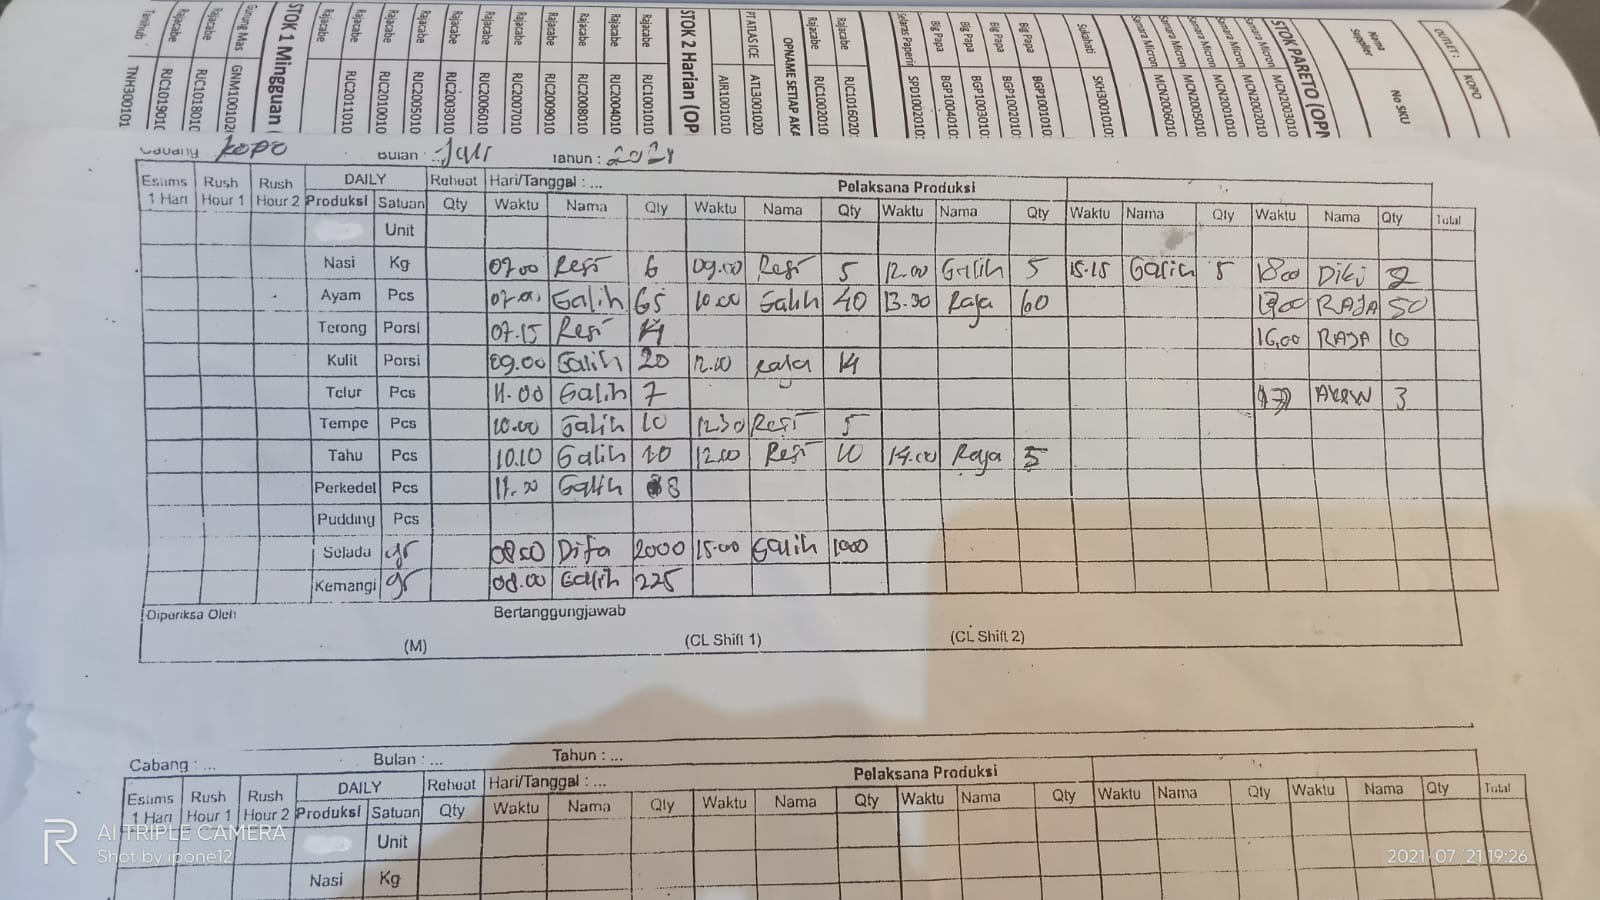 OUTLET : KOPO
Nama Supplier No SKU
STOK PARETO (OPN
Samara Micron MCN2003010
Samara Micron MCN2002010
Samara Micron MCN2001010
Samara Micron MCN2005010
Samara Micron MCN2006010
Sukahati SKH3001010
Big Papa BGP1001010
Big Papa BGP1002010
Big Papa BGP1003010
Big Papa BGP1004010
Selaras Paperin SPD1002010
Rajacabe RJC1016020
Rajacabe RJC1002010
OPNAME SETIAP AKH
PT ATLAS ICE ATL3001020
AIR1001010
STOK 2 Harian (OP
Rajacabe RJC1001010
Rajacabe RJC2004010
Rajacabe RJC2008010
Rajacabe RJC2009010
Rajacabe RJC2007010
Rajacabe RJC2006010
Rajacabe RJC2003010
Rajacabe RJC2005010
Rajacabe RJC2010010
Rajacabe RJC2011010
STOK 1 Mingguan (
Gunung Mas GNM1001020
Rajacabe RJC1018010
Rajacabe RJC1019010
Tanihub TNH3001010
Cabang Kopo Bulan : Juli Tahun : 2021
Estims 1 Hari Rush Hour 1 Rush Hour 2 DAILY Reheat Hari/Tanggal : ... Pelaksana Produksi
Produksi Satuan Qty Waktu Nama Qty Waktu Nama Qty Waktu Nama Qty Waktu Nama Qty Waktu Nama Qty Total
Unit
Nasi Kg 07.00 Resi 6 09.00 Resi 5 12.00 Galih 5 15.15 Galih 5 18.00 Diki 2
Ayam Pcs Galih 65 10.00 Galih 40 13.30 Raja 60 RAJA 50
Terong Porsi 07.15 Resi 14 16.00 RAJA 10
Kulit Porsi 09.00 Galih 20 12.00 Raja 14
Telur Pcs 11.00 Galih 7 3
Tempe Pcs 10.00 Galih 10 12.30 Resi 5
Tahu Pcs 10.10 Galih 10 12.00 Resi 10 14.00 Raja 5
Perkedel Pcs Galih 8
Pudding Pcs
Selada gr Difa 2000 15.00 Galih 1000
Kemangi gr 08.00 Galih 225
Diperiksa Oleh Bertanggungjawab
(M) (CL Shift 1) (CL Shift 2)
Cabang : ... Bulan : ... Tahun : ...
Estims 1 Hari Rush Hour 1 Rush Hour 2 DAILY Reheat Hari/Tanggal : ... Pelaksana Produksi
Produksi Satuan Qty Waktu Nama Qty Waktu Nama Qty Waktu Nama Qty Waktu Nama Qty Waktu Nama Qty Total
Unit
Nasi Kg
AI TRIPLE CAMERA
Shot by ipone12
2021/07/21 19:26